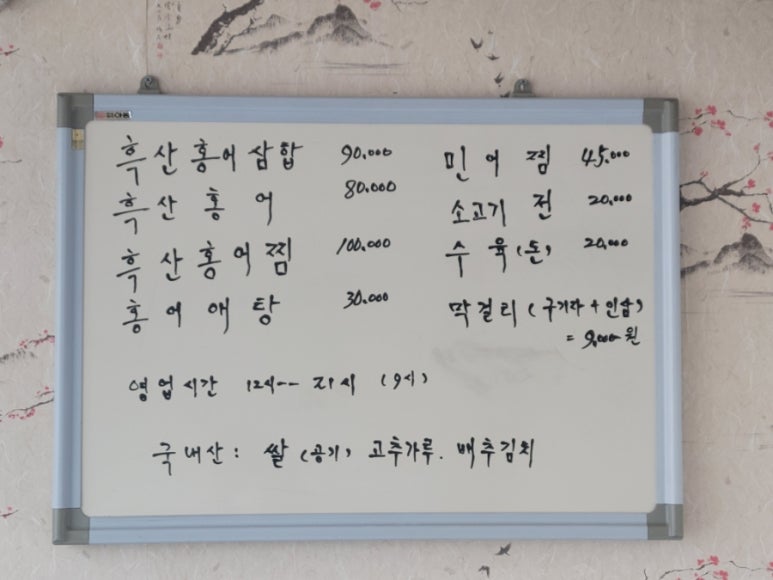 흑산홍어삼합 90.000
흑산 홍어 80.000
흑산홍어찜 100.000
홍어애탕 30.000
민어찜 45.000
소고기 전 20.000
수육(돈) 20.000
막걸리 (구기자 + 인삼)
= 9,000원
영업시간 12시-- 21시 (9시)
국내산: 쌀(공기) 고추가루. 배추김치